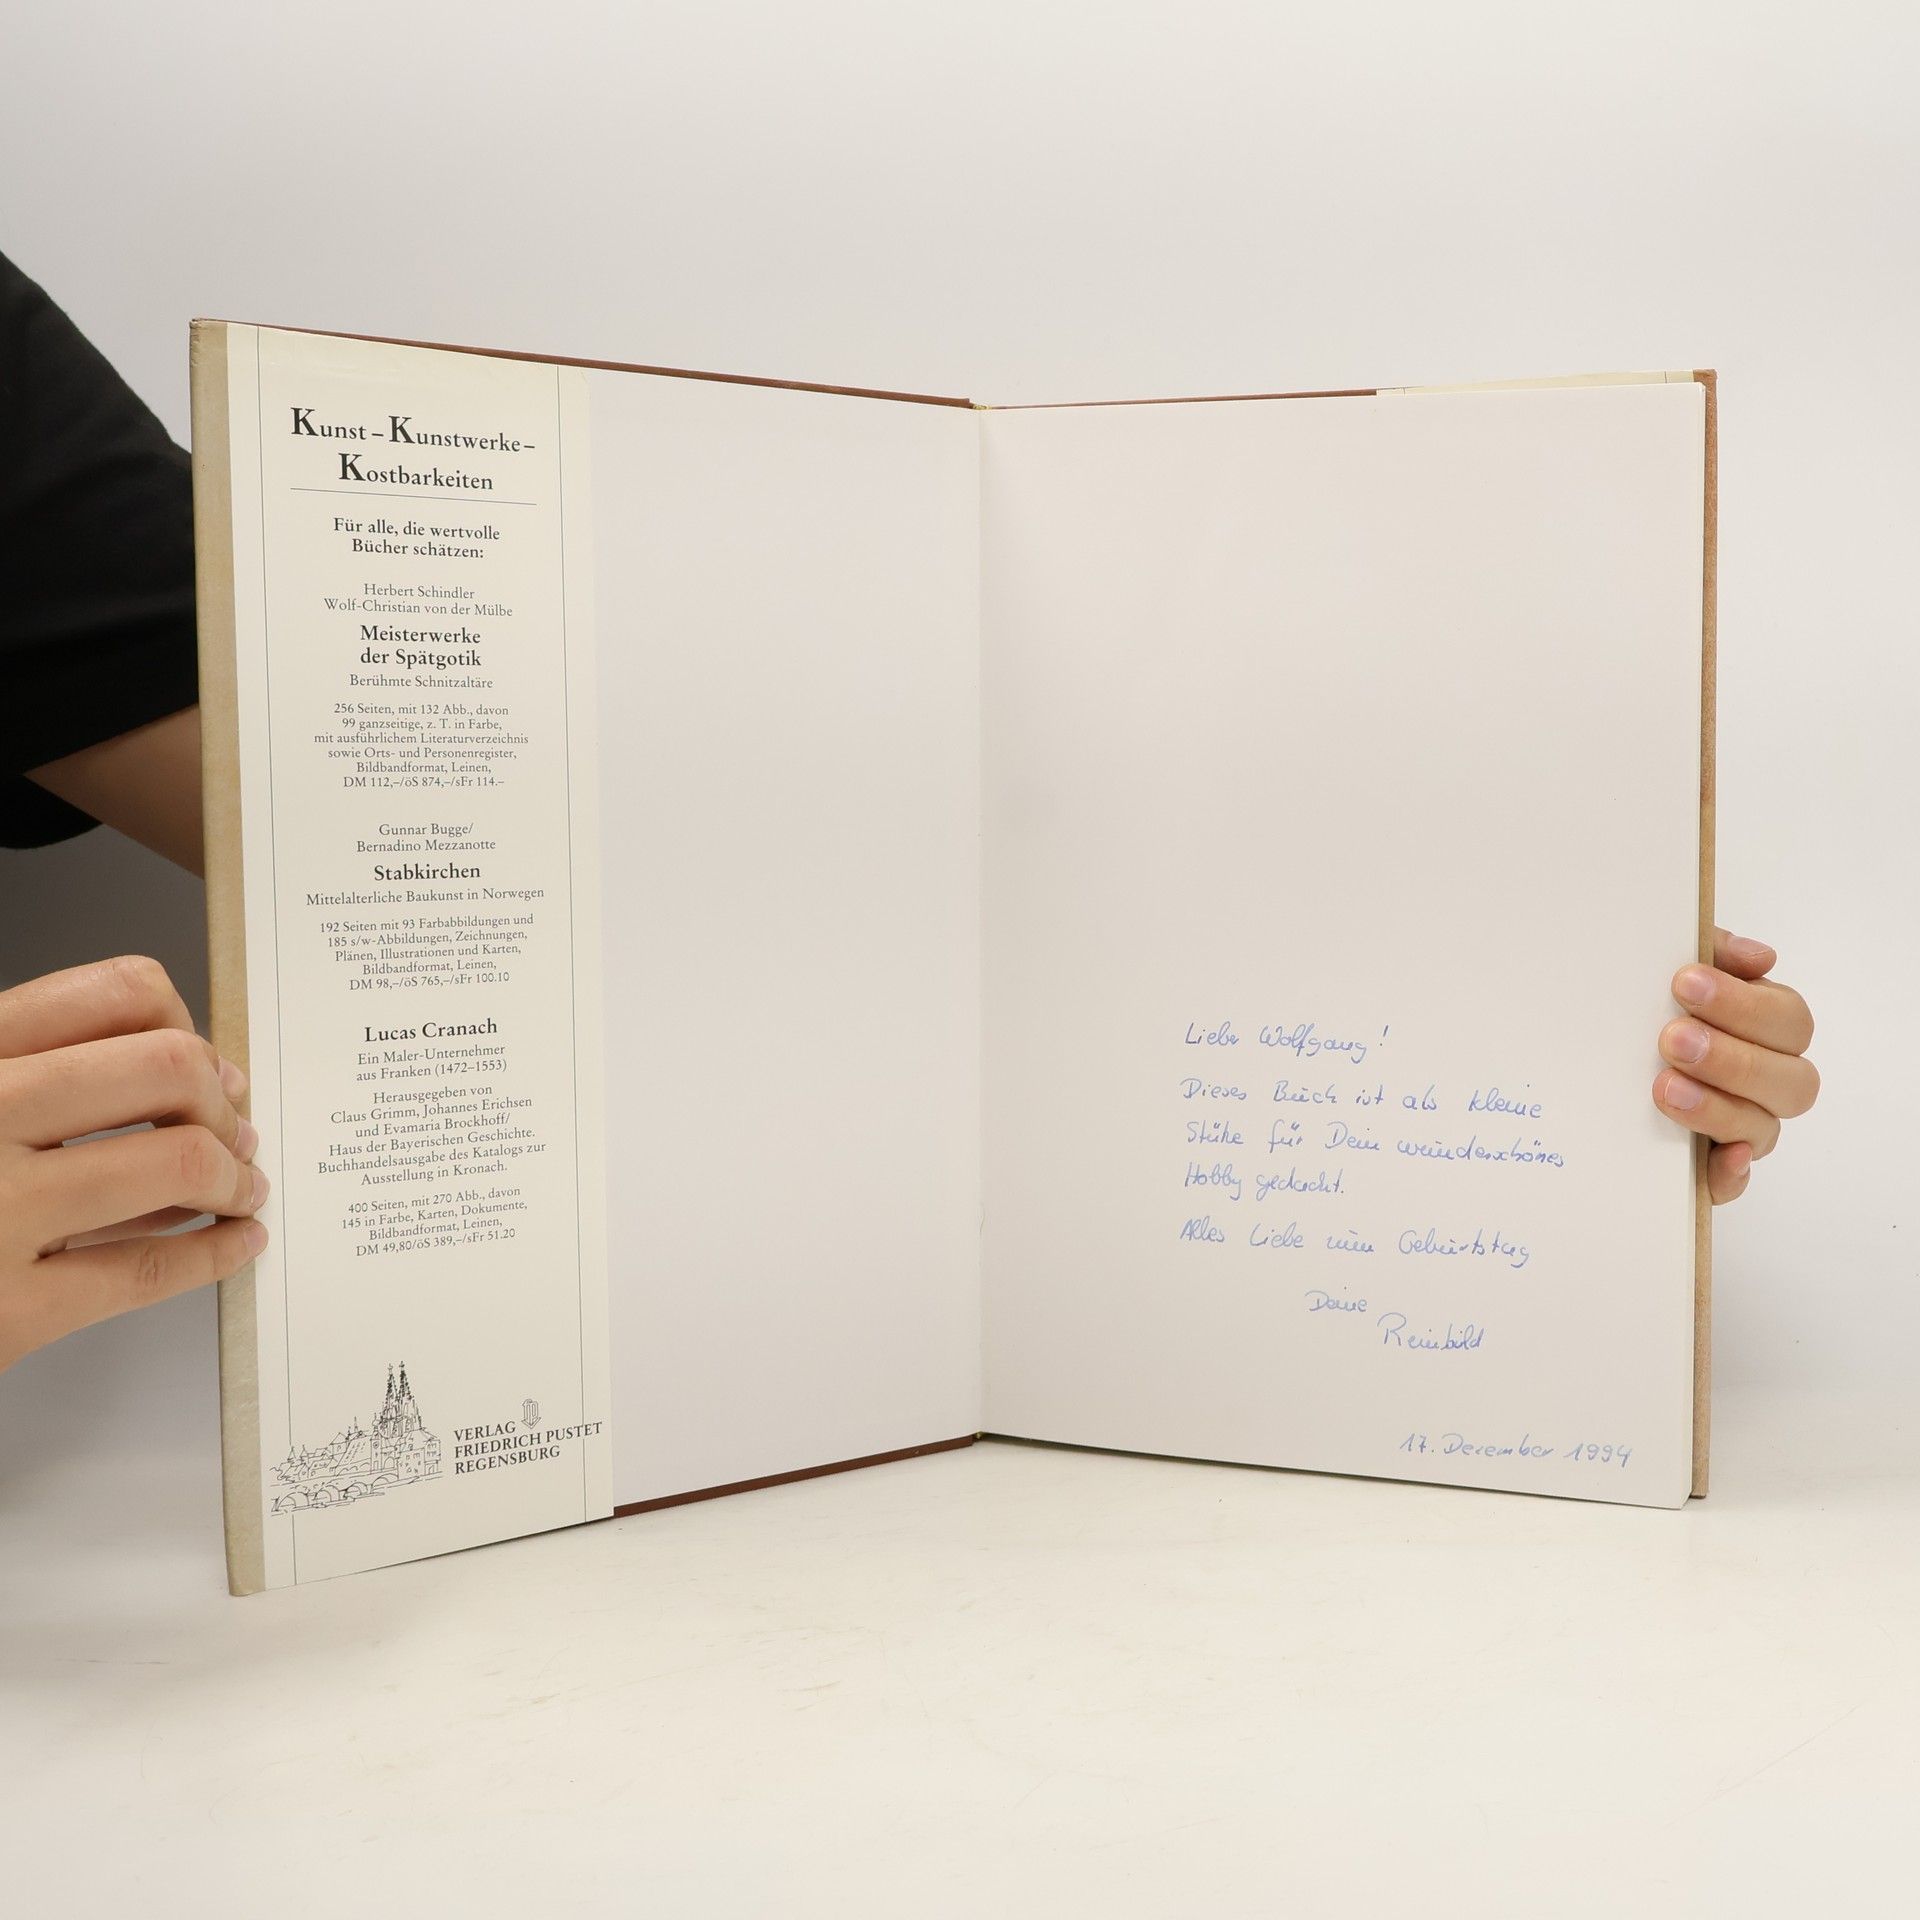 Kunst – Kunstwerke –
Kostbarkeiten
Für alle, die wertvolle
Bücher schätzen:
Herbert Schindler
Wolf-Christian von der Mülbe
Meisterwerke
der Spätgotik
Berühmte Schnitzaltäre
256 Seiten, mit 132 Abb., davon
99 ganzseitige, z. T. in Farbe,
mit ausführlichem Literaturverzeichnis
sowie Orts- und Personenregister,
Bildbandformat, Leinen,
DM 112,–/öS 874,–/sFr 114.–
Gunnar Bugge/
Bernadino Mezzanotte
Stabkirchen
Mittelalterliche Baukunst in Norwegen
192 Seiten mit 93 Farbabbildungen und
185 s/w-Abbildungen, Zeichnungen,
Plänen, Illustrationen und Karten,
Bildbandformat, Leinen,
DM 98,–/öS 765,–/sFr 100.10
Lucas Cranach
Ein Maler-Unternehmer
aus Franken (1472–1553)
Herausgegeben von
Claus Grimm, Johannes Erichsen
und Evamaria Brockhoff/
Haus der Bayerischen Geschichte.
Buchhandelsausgabe des Katalogs zur
Ausstellung in Kronach.
400 Seiten, mit 270 Abb., davon
145 in Farbe, Karten, Dokumente,
Bildbandformat, Leinen,
DM 49,80/öS 389,–/sFr 51.20
VERLAG
FRIEDRICH PUSTET
REGENSBURG
Lieber Wolfgang!
Dieses Buch ist als kleine
Stütze für Dein wunderschönes
Hobby gedacht.
Alles Liebe zum Geburtstag
Deine
Reinhild
17. Dezember 1994